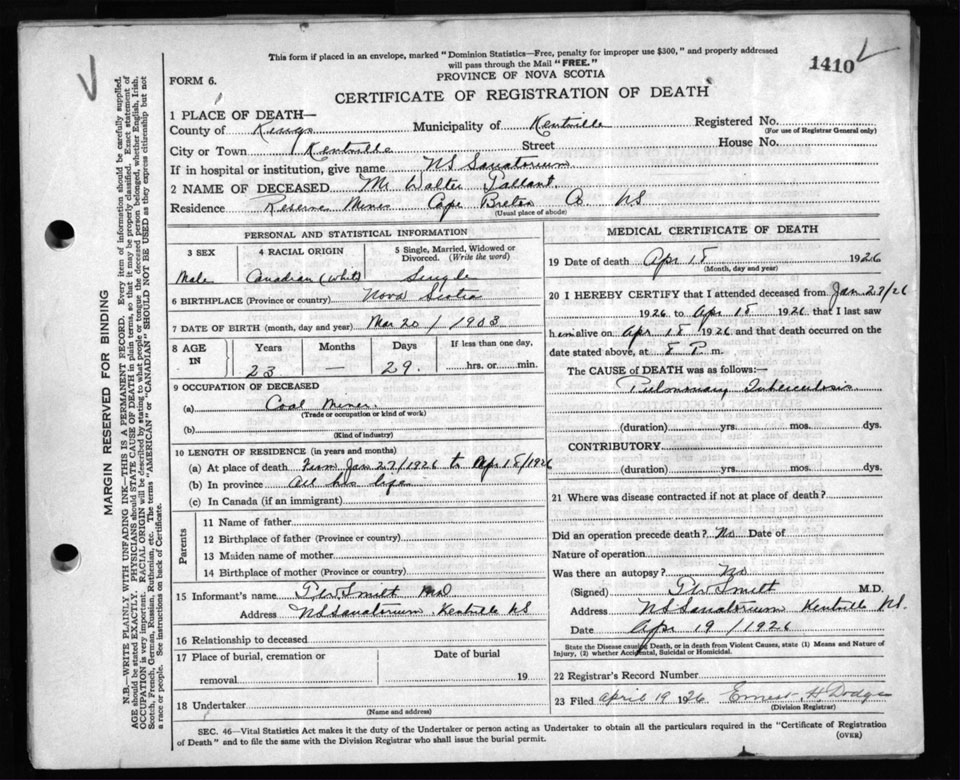 This form if placed in an envelope, marked "Dominion Statistics—Free, penalty for improper use $300," and properly addressed
will pass through the Mail "FREE."
1410
FORM 6.
PROVINCE OF NOVA SCOTIA
CERTIFICATE OF REGISTRATION OF DEATH
1 PLACE OF DEATH—
County of Kings Municipality of Kentville Registered No.
(For use of Registrar General only)
City or Town Kentville Street House No.
If in hospital or institution, give name NS Sanatorium
2 NAME OF DECEASED Mr Walter Pallant
Residence Reserve Mines Cape Breton Co NS
(Usual place of abode)
PERSONAL AND STATISTICAL INFORMATION
3 SEX 4 RACIAL ORIGIN 5 Single, Married, Widowed or
Divorced. (Write the word)
Male Canadian (White) Single
6 BIRTHPLACE (Province or country) Nova Scotia
7 DATE OF BIRTH (month, day and year) Mar 20/1903
8 AGE
IN
Years Months Days If less than one day,
23 — 29. hrs. or min.
9 OCCUPATION OF DECEASED
(a) Coal Miner
(Trade or occupation or kind of work)
(b)
(Kind of industry)
10 LENGTH OF RESIDENCE (in years and months)
(a) At place of death From Jan 27/1926 to Apr 18/1926
(b) In province all his life
(c) In Canada (if an immigrant)
Parents
11 Name of father
12 Birthplace of father (Province or country)
13 Maiden name of mother
14 Birthplace of mother (Province or country)
15 Informant's name Smith MD
Address NS Sanatorium Kentville NS
16 Relationship to deceased
17 Place of burial, cremation or Date of burial
removal 19
18 Undertaker
(Name and address)
MEDICAL CERTIFICATE OF DEATH
19 Date of death Apr 18 1926
(Month, day and year)
20 I HEREBY CERTIFY that I attended deceased from Jan 27/26
1926 to Apr 18 1926 that I last saw
him alive on Apr 18 1926 and that death occurred on
date stated above, at 8 P. m.
The CAUSE of DEATH was as follows:—
Pulmonary Tuberculosis
(duration) yrs. mos. dys.
CONTRIBUTORY
(duration) yrs. mos. dys.
21 Where was disease contracted if not at place of death?
Did an operation precede death? No Date of
Nature of operation
Was there an autopsy? No
(Signed) Smith M.D.
Address NS Sanatorium Kentville NS.
Date Apr 19/1926
State the Disease causing Death, or in death from Violent Causes, state (1) Means and Nature of
Injury, (2) whether Accidental, Suicidal or Homicidal.
22 Registrar's Record Number
23 Filed April 19 1926 Ernest H. Dodge
(Division Registrar)
SEC. 46—Vital Statistics Act makes it the duty of the Undertaker or person acting as Undertaker to obtain all the particulars required in the "Certificate of Registration
of Death" and to file the same with the Division Registrar who shall issue the burial permit.
(OVER)
MARGIN RESERVED FOR BINDING
N.B.—WRITE PLAINLY WITH UNFADING INK—THIS IS A PERMANENT RECORD. Every item of information should be carefully supplied.
AGE should be stated EXACTLY. PHYSICIANS should STATE CAUSE OF DEATH in plain terms, so that it may be properly classified. Exact statement of
OCCUPATION is very important. RACIAL ORIGIN will be described by stating to what people or tongue the deceased person belonged, whether English, Irish,
Scotch, French, German, Russian, Ruthenian, etc. The terms "AMERICAN" or "CANADIAN" SHOULD NOT BE USED as they express citizenship but not
a race or people. See instructions on back of Certificate.